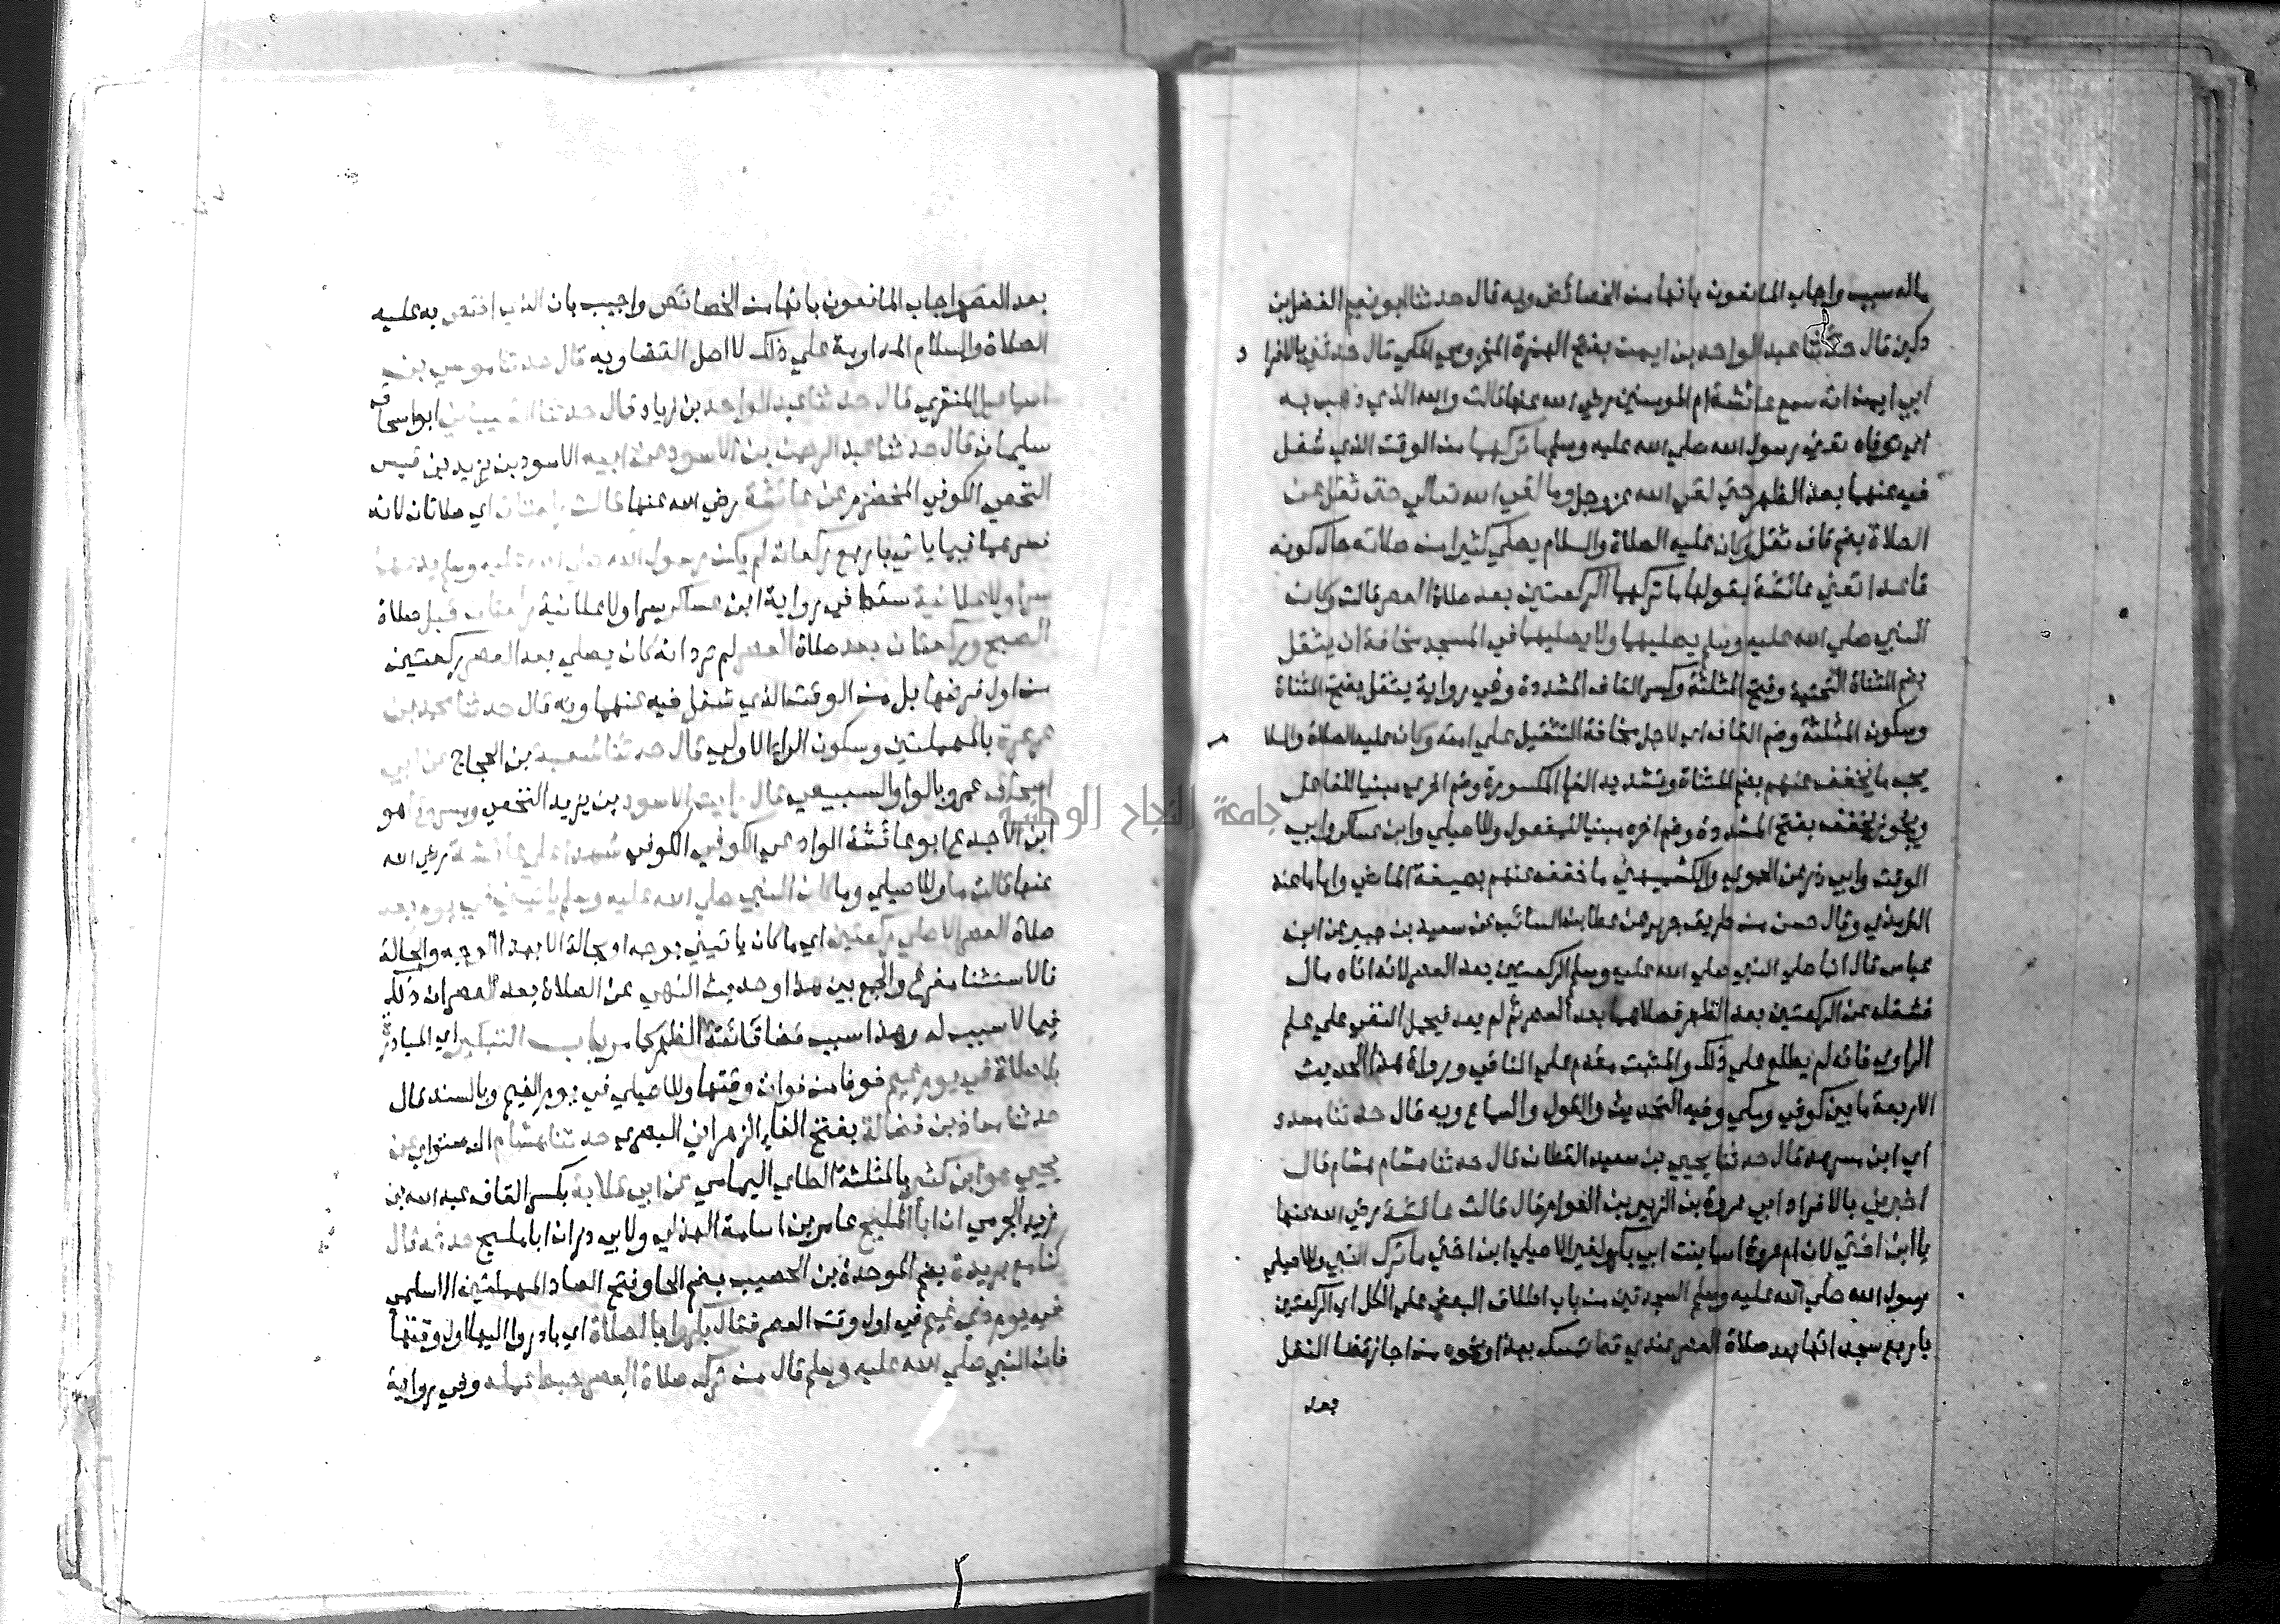 ماله سبب واجاب المانعون بانها من الخصائص وبه قال حدثنا ابو نعيم الفضل بن
دكين قال حدثنا عبد الواحد بن ايمن بفتح الهمزة المخزومي المكي قال حدثني بالافرا د
ابي ايمن انه سمع عائشة ام المومنين رضي الله عنها قالت والله الذي ذهب به
اي توفاه تعني رسول الله صلي الله عليه وسلم ما تركهما من الوقت الذي شغل
فيه عنهما بعد الظهر حتي لقي الله عز وجل وما لقي الله تعالي حتي ثقل عن
الصلاة بضم قاف ثقل وكان عليه الصلاة والسلام يصلي كثيرا من صلاته حال كونه
قاعدا تعني عائشة بقولها ما تركهما الركعتين بعد صلاة العصر قالت وكان
النبي صلي الله عليه وسلم يصليهما ولا يصليهما في المسجد مخافة ان يثقل
بضم المثناة التحتية وفتح المثلثة وكسر القاف المشددة وفي رواية يثقل بفتح المثناة
وسكون المثلثة وضم القاف اي لاجل مخافة التثقيل علي امته وكان عليه الصلاة والسلا م
يحب ما يخفف عنهم بضم المثناة وتشديد الفا المكسورة وضم اخره مبنيا للفاعل
ويجوز يخفف بفتح المشددة وضم اخره مبنيا للمفعول وللاصيلي وابن عساكر وابي
الوقت وابي ذر عن الحموي والكشميهني ما خفف عنهم بصيغة الماضي واما ما عند
الترمذي وقال حسن من طريق جرير عن عطا بن السائب عن سعيد بن جبير عن ابن
عباس قال انما صلي النبي صلي الله عليه وسلم الركعتين بعد العصر لانه اتاه مال
فشغله عن الركعتين بعد الظهر فصلاهما بعد العصر ثم لم يعد فيحمل النفي علي علم
الراوي فانه لم يطلع علي ذلك والمثبت مقدم علي النافي ورواة هذا الحديث
الاربعة ما بين كوفي ومكي وفيه التحديث والقول والسماع وبه قال حدثنا مسدد
اي ابن مسرهد قال حدثنا يحيي بن سعيد القطان قال حدثنا هشام هشام قال
اخبرني بالافراد ابي عروة بن الزبير بن العوام قال قالت عائشة رضي الله عنها
يا ابن اختي لان ام عروة اسما بنت ابي بكر ولغير الاصيلي ابن اختي ما ترك النبي وللاصيلي
رسول الله صلي الله عليه وسلم السجدتين من باب اطلاق البعض علي الكل اي الركعتين
باربع سجداتها بعد صلاة العصر عندي قط تمسك بهذا ونحوه من اجاز قضا النفل
بعد
بعد العصر واجاب المانعون بانها من الخصائص واجيب بان الذي اختص به عليه
الصلاة والسلام المداومة علي ذلك لا اصل القضا وبه قال حدثنا موسي بن
اسماعيل المنقري قال حدثنا عبد الواحد بن زياد قال حدثنا الشيباني ابو اسحا ق
سليمان قال حدثنا عبد الرحمن بن الاسود عن ابيه الاسود بن يزيد بن قيس
النخعي الكوفي المخضرم عن عائشة رضي الله عنها قالت ركعتان اي صلاتان لانه
فسرهما فيما ياتي باربع ركعات لم يكن رسول الله صلي الله عليه وسلم يدعهما
سرا ولا علانية سقط في رواية ابن عساكر سرا ولا علانية ركعتان قبل صلاة
الصبح وركعتان بعد صلاة العصر لم ترد انه كان يصلي بعد العصر ركعتين
من اول فرضها بل من الوقت الذي شغل فيه عنهما وبه قال حدثنا محمد بن
عرعرة بالمهملتين وسكون الراء الاولي قال حدثنا شعبة بن الحجاج عن ابي
اسحاق عمرو بالواو السبيعي قال رايت الاسود بن يزيد النخعي ومسروقا هو
ابن الاجدع ابو عائشة الوادعي الكوفي الكوفي شهدا علي عائشة رضي الله
عنها قالت ما وللاصيلي وما كان النبي صلي الله عليه وسلم ياتيني في يوم بعد
صلاة العصر الا صلي ركعتين اي ما كان ياتيني بوجه او بحالة الا بهذا الوجه والحالة
فالاستثنا مفرغ والجمع بين هذا وحديث النهي عن الصلاة بعد العصر ان ذلك
فيما لا سبب له وهذا سبب قضا فائتة الظهر كما مر باب التبكير اي المبادرة
بالصلاة في يوم غيم خوفا من فوات وقتها وللاصيلي في يوم الغيم وبالسند قال
حدثنا معاذ بن فضالة بفتح الفاء الزهراني البصري حدثنا هشام الدستوائي عن
يحيي هو ابن كثير بالمثلثة الطائي اليمامي عن ابي قلابة بكسر القاف عبد الله بن
زيد الجرمي ان ابا المليح عامر بن اسامة الهذلي ولابي ذر ان ابا مليح حدثه قال
كنا مع بريدة بضم الموحدة بن الحصيب بضم الحا وفتح الصاد المهملتين الاسلمي
في يوم ذي غيم في اول وقت العصر فقال بكروا بالصلاة اي بادروا اليها اول وقتها
فان النبي صلي الله عليه وسلم قال من ترك صلاة العصر حبط عمله وفي رواية
جامعة النجاح الوطنية